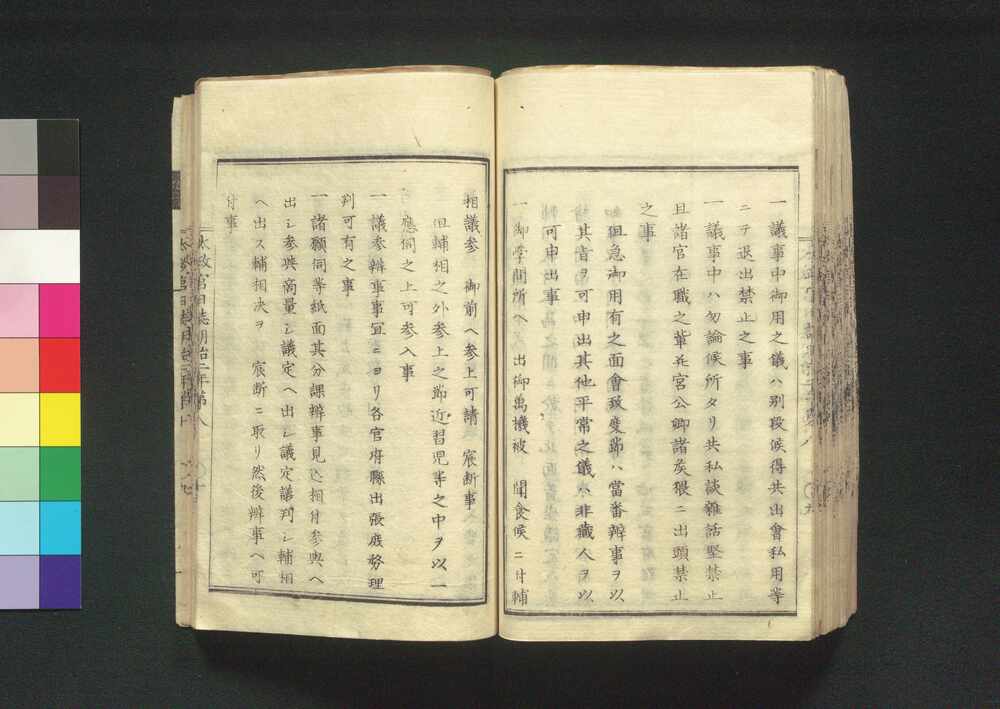 一議事中御用之儀ハ別段候得共出會私用等
ニテ退出禁止之事
一議事中ハ勿論候所タリ共私談雜話堅禁止
且諸官在職之輩并宮公卿諸矦猥ニ出頭禁止
之事
但急御用有之面會致度節ハ當番辨事ヲ以
其旨ヲ可申出其他平常之儀ハ非藏人ヲ以
可申出事
一御學問所ヘ 出御萬機被 聞食候ニ付輔
相議参 御前ヘ参上可請 宸斷事
但輔相之外参上之節近習児等之中ヲ以一
應伺之上可参入事
一議参辨事事冝ニヨリ各官府縣出張庶務理
判可有之事
一諸願伺等紙面其分課辨事見込相付参與ヘ
出シ参與商量シ議定ヘ出シ議定議判シ輔相
ヘ出ス輔相決ヲ 宸断ニ取リ然後辨事ヘ可
付事
太政官日誌明治二年第八